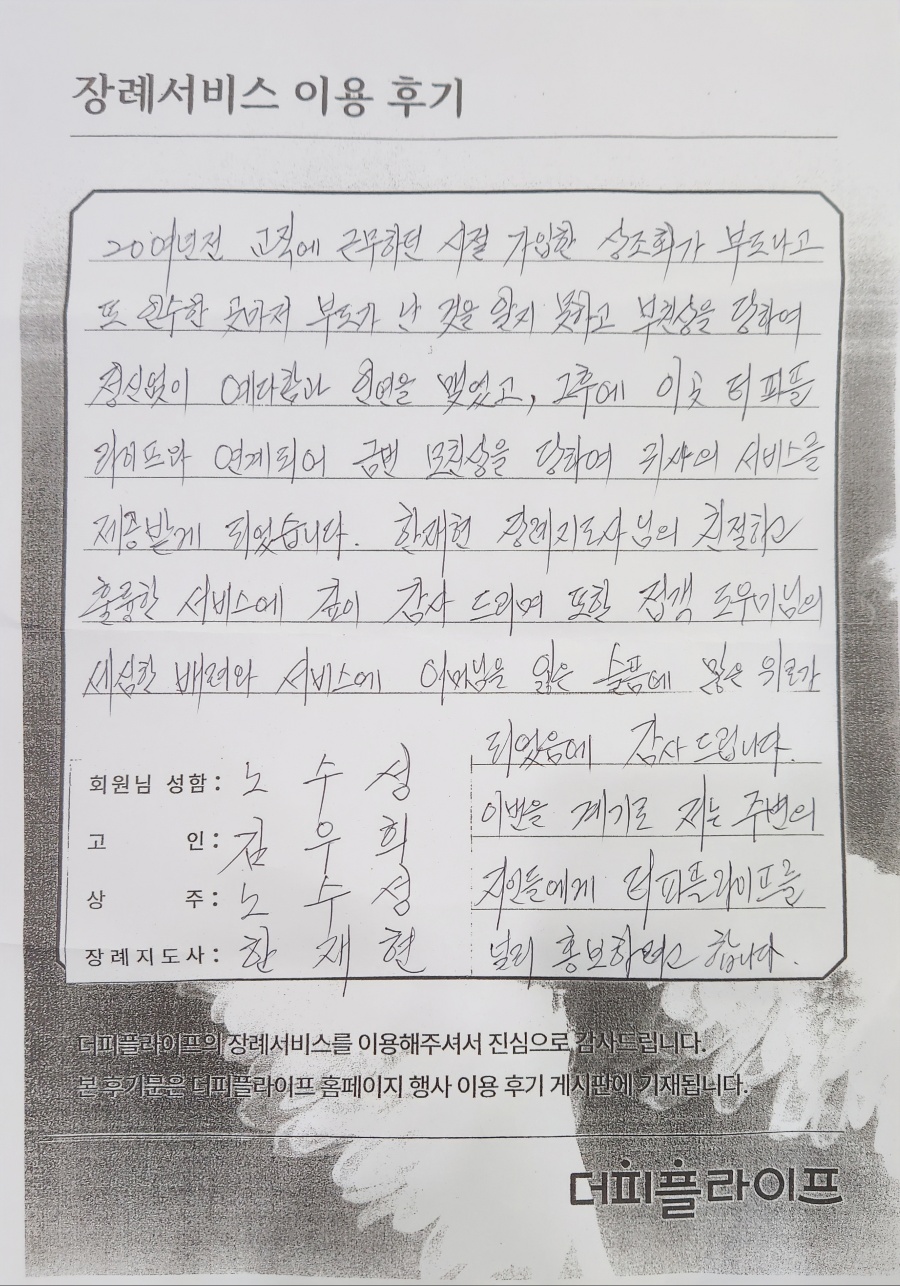 장례서비스 이용 후기
20여년전 교직에 근무하던 시절 가입한 상조회가 부도나고
또 인수한 곳마저 부도가 난 것을 알지 못하고 부친상을 당하여
정신없이 예다함과 인연을 맺었고, 그후에 이곳 더피플
라이프와 연계되어 금번 모친상을 당하여 귀사의 서비스를
제공받게 되었습니다. 한재현 장례지도사님의 친절하고
훌륭한 서비스에 깊이 감사 드리며 또한 접객 도우미님의
세심한 배려와 서비스에 어머님을 잃은 슬픔에 많은 위로가
되었음에 감사 드립니다.
이번을 계기로 저는 주변의
지인들에게 더피플라이프를
널리 홍보하려고 합니다.
회원님 성함 : 노 수 성
고 인 : 김 우 희
상 주 : 노 수 성
장례지도사 : 한 재 현
더피플라이프의 장례서비스를 이용해주셔서 진심으로 감사드립니다.
본 후기문은 더피플라이프 홈페이지 행사 이용 후기 게시판에 기재됩니다.
더피플라이프